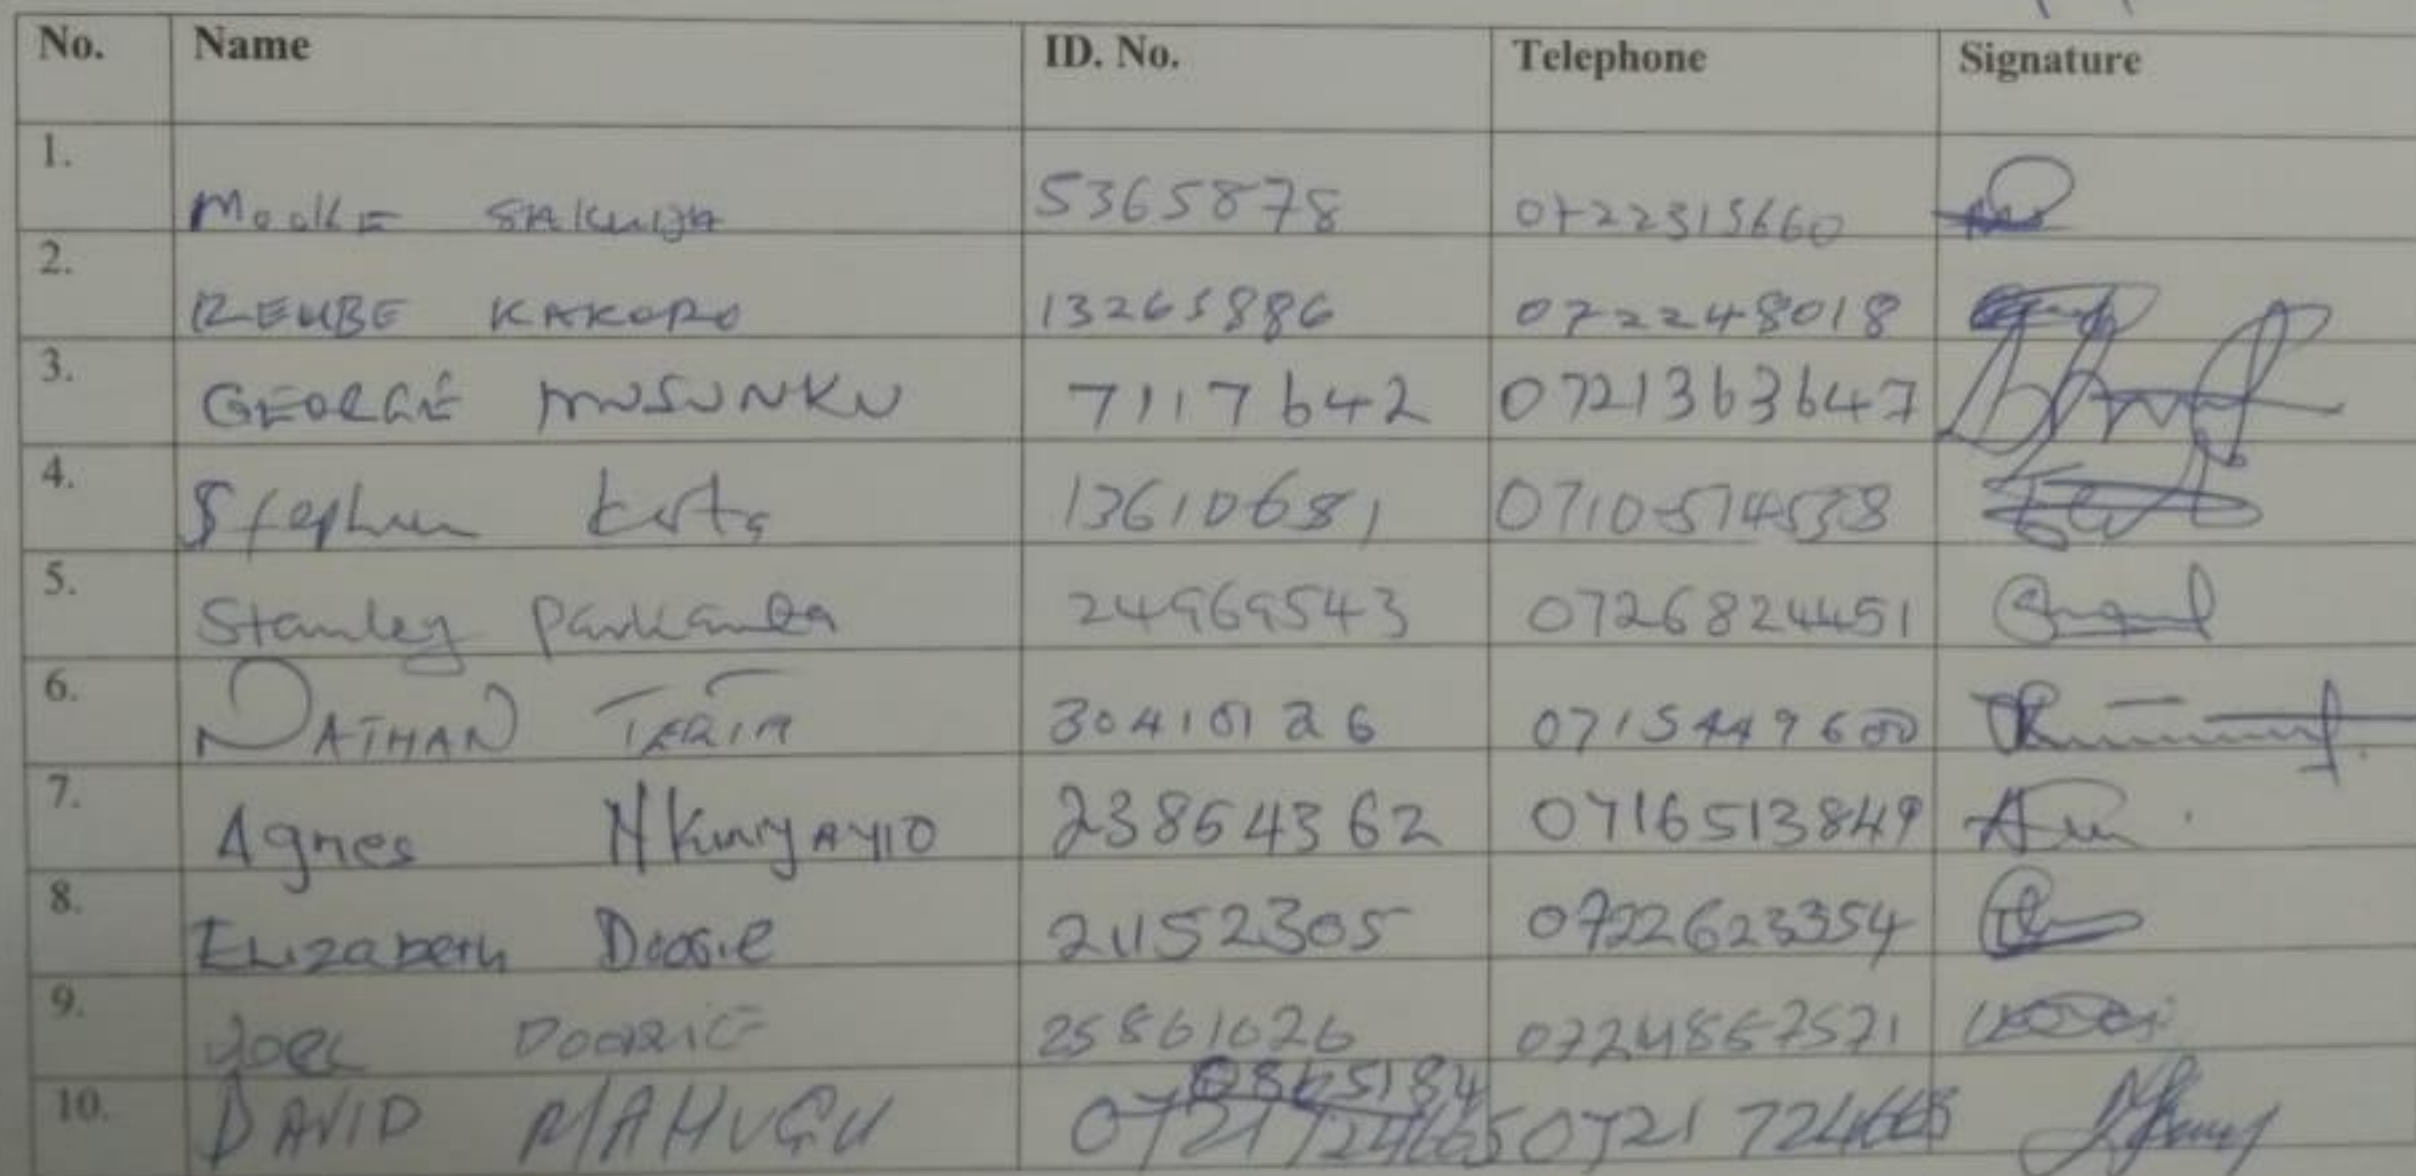 No. Name ID. No. Telephone Signature
1. 5365878 0722315660
2. REUBE KAKORO 13265886 072248018
3. GEORGE MUSUNKU 7117642 0721363647
4. Stephen 13610681 0710574538
5. Stanley 24969543 0726824451
6. NATHAN TERIA 30410126 0715449600
7. Agnes 23864362 0716513849
8. Elizabeth Doorie 21152305 0722623354
9. Joel DOORIE 25861026 0724867571
10. DAVID MAHUGU 0721